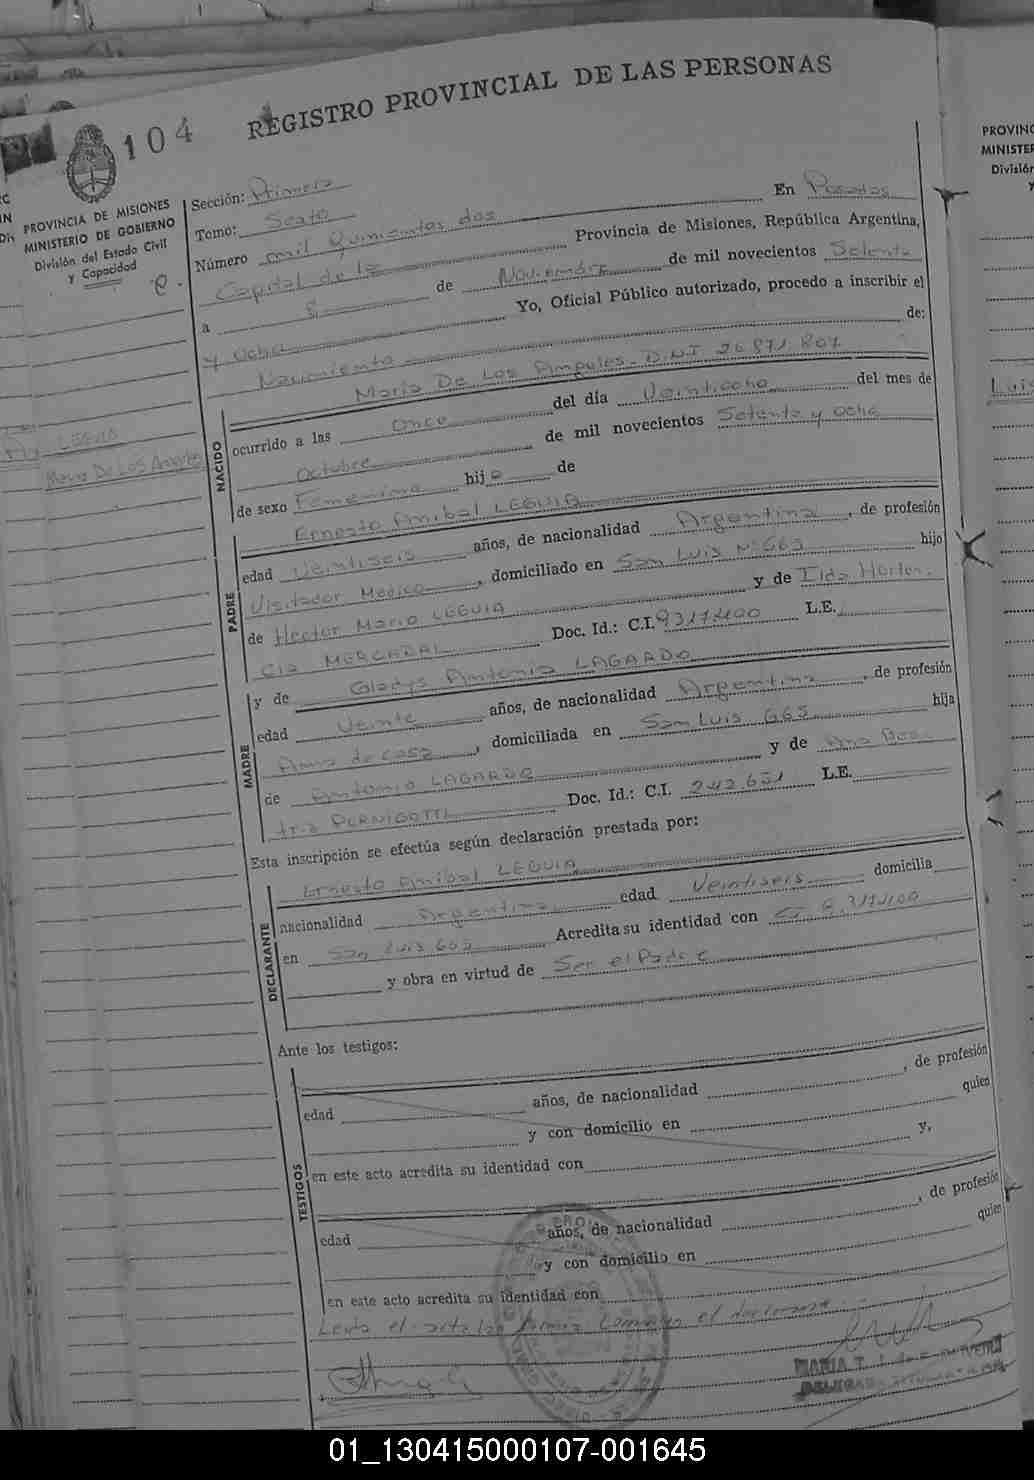 REGISTRO PROVINCIAL DE LAS PERSONAS
104
PROVINCIA DE MISIONES
MINISTERIO DE GOBIERNO
División del Estado Civil
y Capacidad
Sección: Primera
Tomo: Sexto
Número mil Quinientos dos
En Posadas
Capital de la Provincia de Misiones, República Argentina,
a 8 de Noviembre de mil novecientos Setenta
y Ocho Yo, Oficial Público autorizado, procedo a inscribir el
Nacimiento de:
LEGUIA
Maria De Los Angeles
NACIDO
Maria De Los Angeles - D.N.I 26.871.807
ocurrido a las Once del día Veintiocho del mes de
Octubre de mil novecientos Setenta y Ocho
de sexo Femenino hija de
PADRE
Ernesto Anibal LEGUIA
edad Veintiseis años, de nacionalidad Argentina, de profesión
Visitador Medico, domiciliado en San Luis Nº 665 hijo
de Hector Mario LEGUIA y de Ilda Horten.
cia MERCADAL Doc. Id.: C.I. 9317400 L.E.
MADRE
y de Gladys Antonia LAGARDO
edad Veinte años, de nacionalidad Argentina, de profesión
Ama de casa, domiciliada en San Luis 665 hija
de Antonio LAGARDO y de Ana Bea
triz PERNIGOTTI Doc. Id.: C.I. 242.651 L.E.
Esta inscripción se efectúa según declaración prestada por:
DECLARANTE
Ernesto Anibal LEGUIA
nacionalidad Argentina edad Veintiseis domicilia
en San Luis 665 Acredita su identidad con CI. 9.317.400
y obra en virtud de Ser el Padre
Ante los testigos:
TESTIGOS
edad años, de nacionalidad , de profesión
y con domicilio en quien
en este acto acredita su identidad con y,
edad años, de nacionalidad , de profesión
y con domicilio en quien
en este acto acredita su identidad con
Leida el acta la firma conmigo el declarante
MARIA T.
PROVINC
MINISTER
División
Luis
01_130415000107-001645